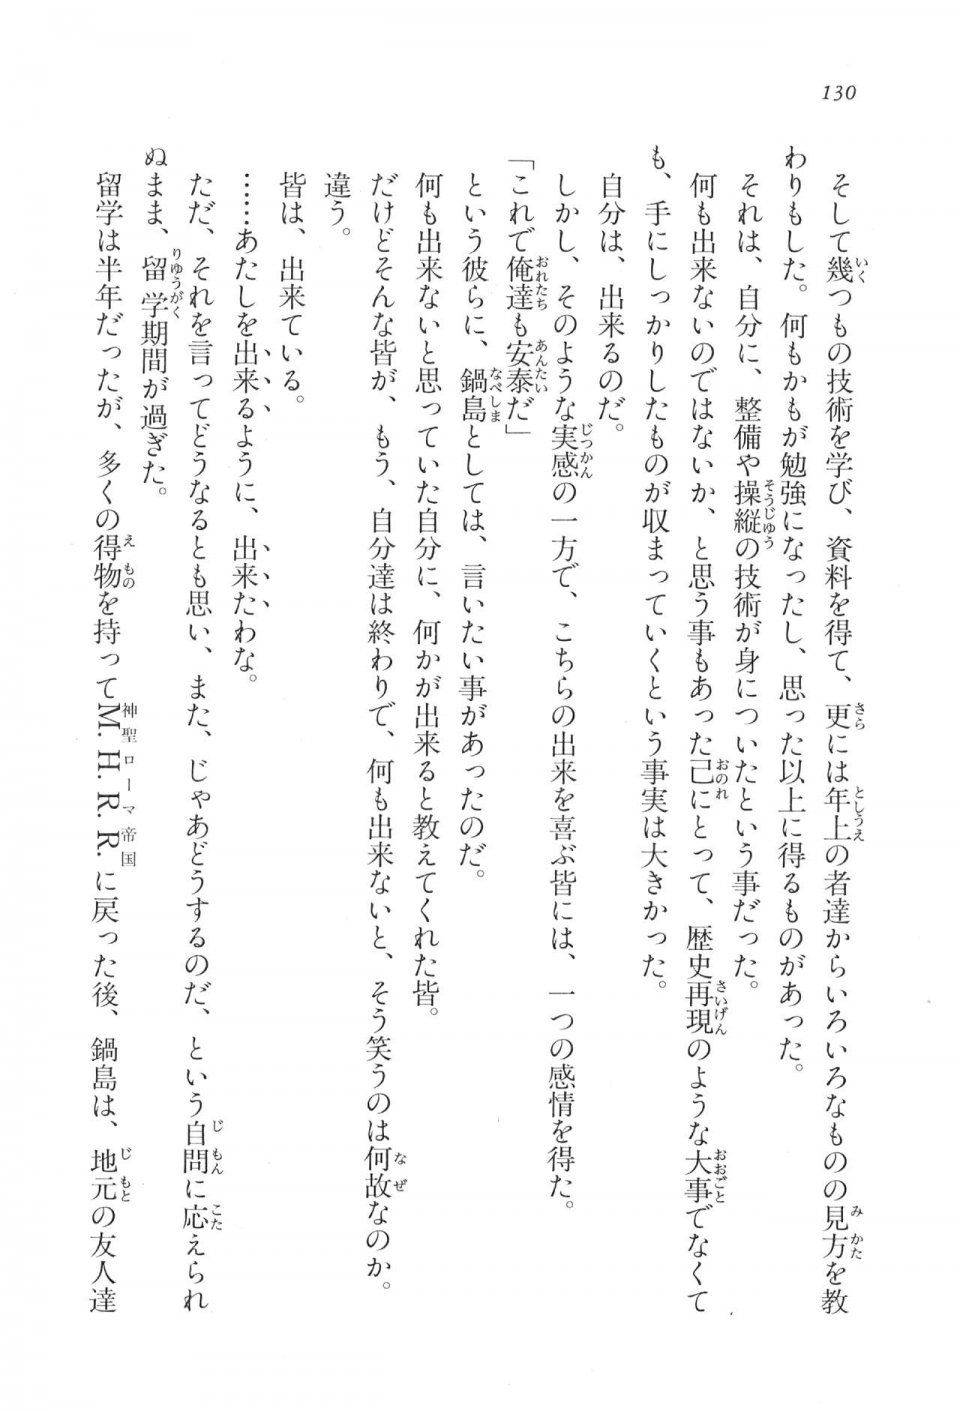 130
そして幾つもの技術を学び、資料を得て、更には年上の者達からいろいろなものの見方を教
わりもした。何もかもが勉強になったし、思った以上に得るものがあった。
それは、自分に、整備や操縦の技術が身についたという事だった。
何も出来ないのではないか、と思う事もあった己にとって、歴史再現のような大事でなくて
も、手にしっかりしたものが収まっていくという事実は大きかった。
自分は、出来るのだ。
しかし、そのような実感の一方で、こちらの出来を喜ぶ皆には、一つの感情を得た。
「これで俺達も安泰だ」
という彼らに、鍋島としては、言いたい事があったのだ。
何も出来ないと思っていた自分に、何かが出来ると教えてくれた皆。
だけどそんな皆が、もう、自分達は終わりで、何も出来ないと、そう笑うのは何故なのか。
違う。
皆は、出来ている。
……あたしを出来るように、出来たわな。
ただ、それを言ってどうなるとも思い、また、じゃあどうするのだ、という自問に応えられ
ぬまま、留学期間が過ぎた。
留学は半年だったが、多くの得物を持ってM.H.R.R.に戻った後、鍋島は、地元の友人達